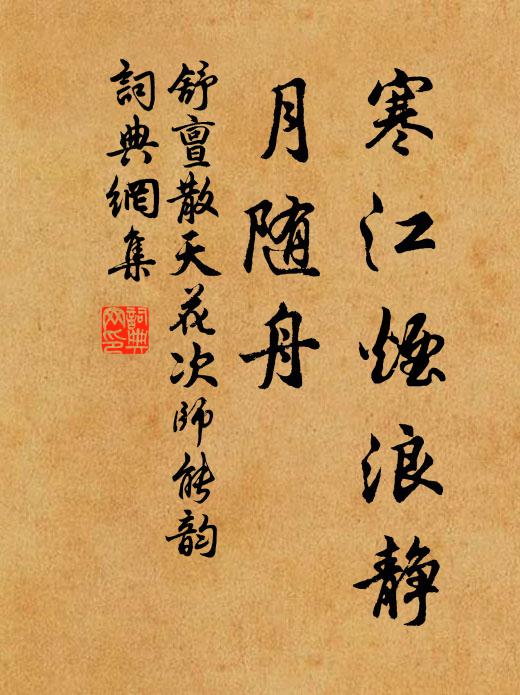 寒江煙浪静
月随舟
舒亶散天花次師能韵
詞典網集
詞典網印